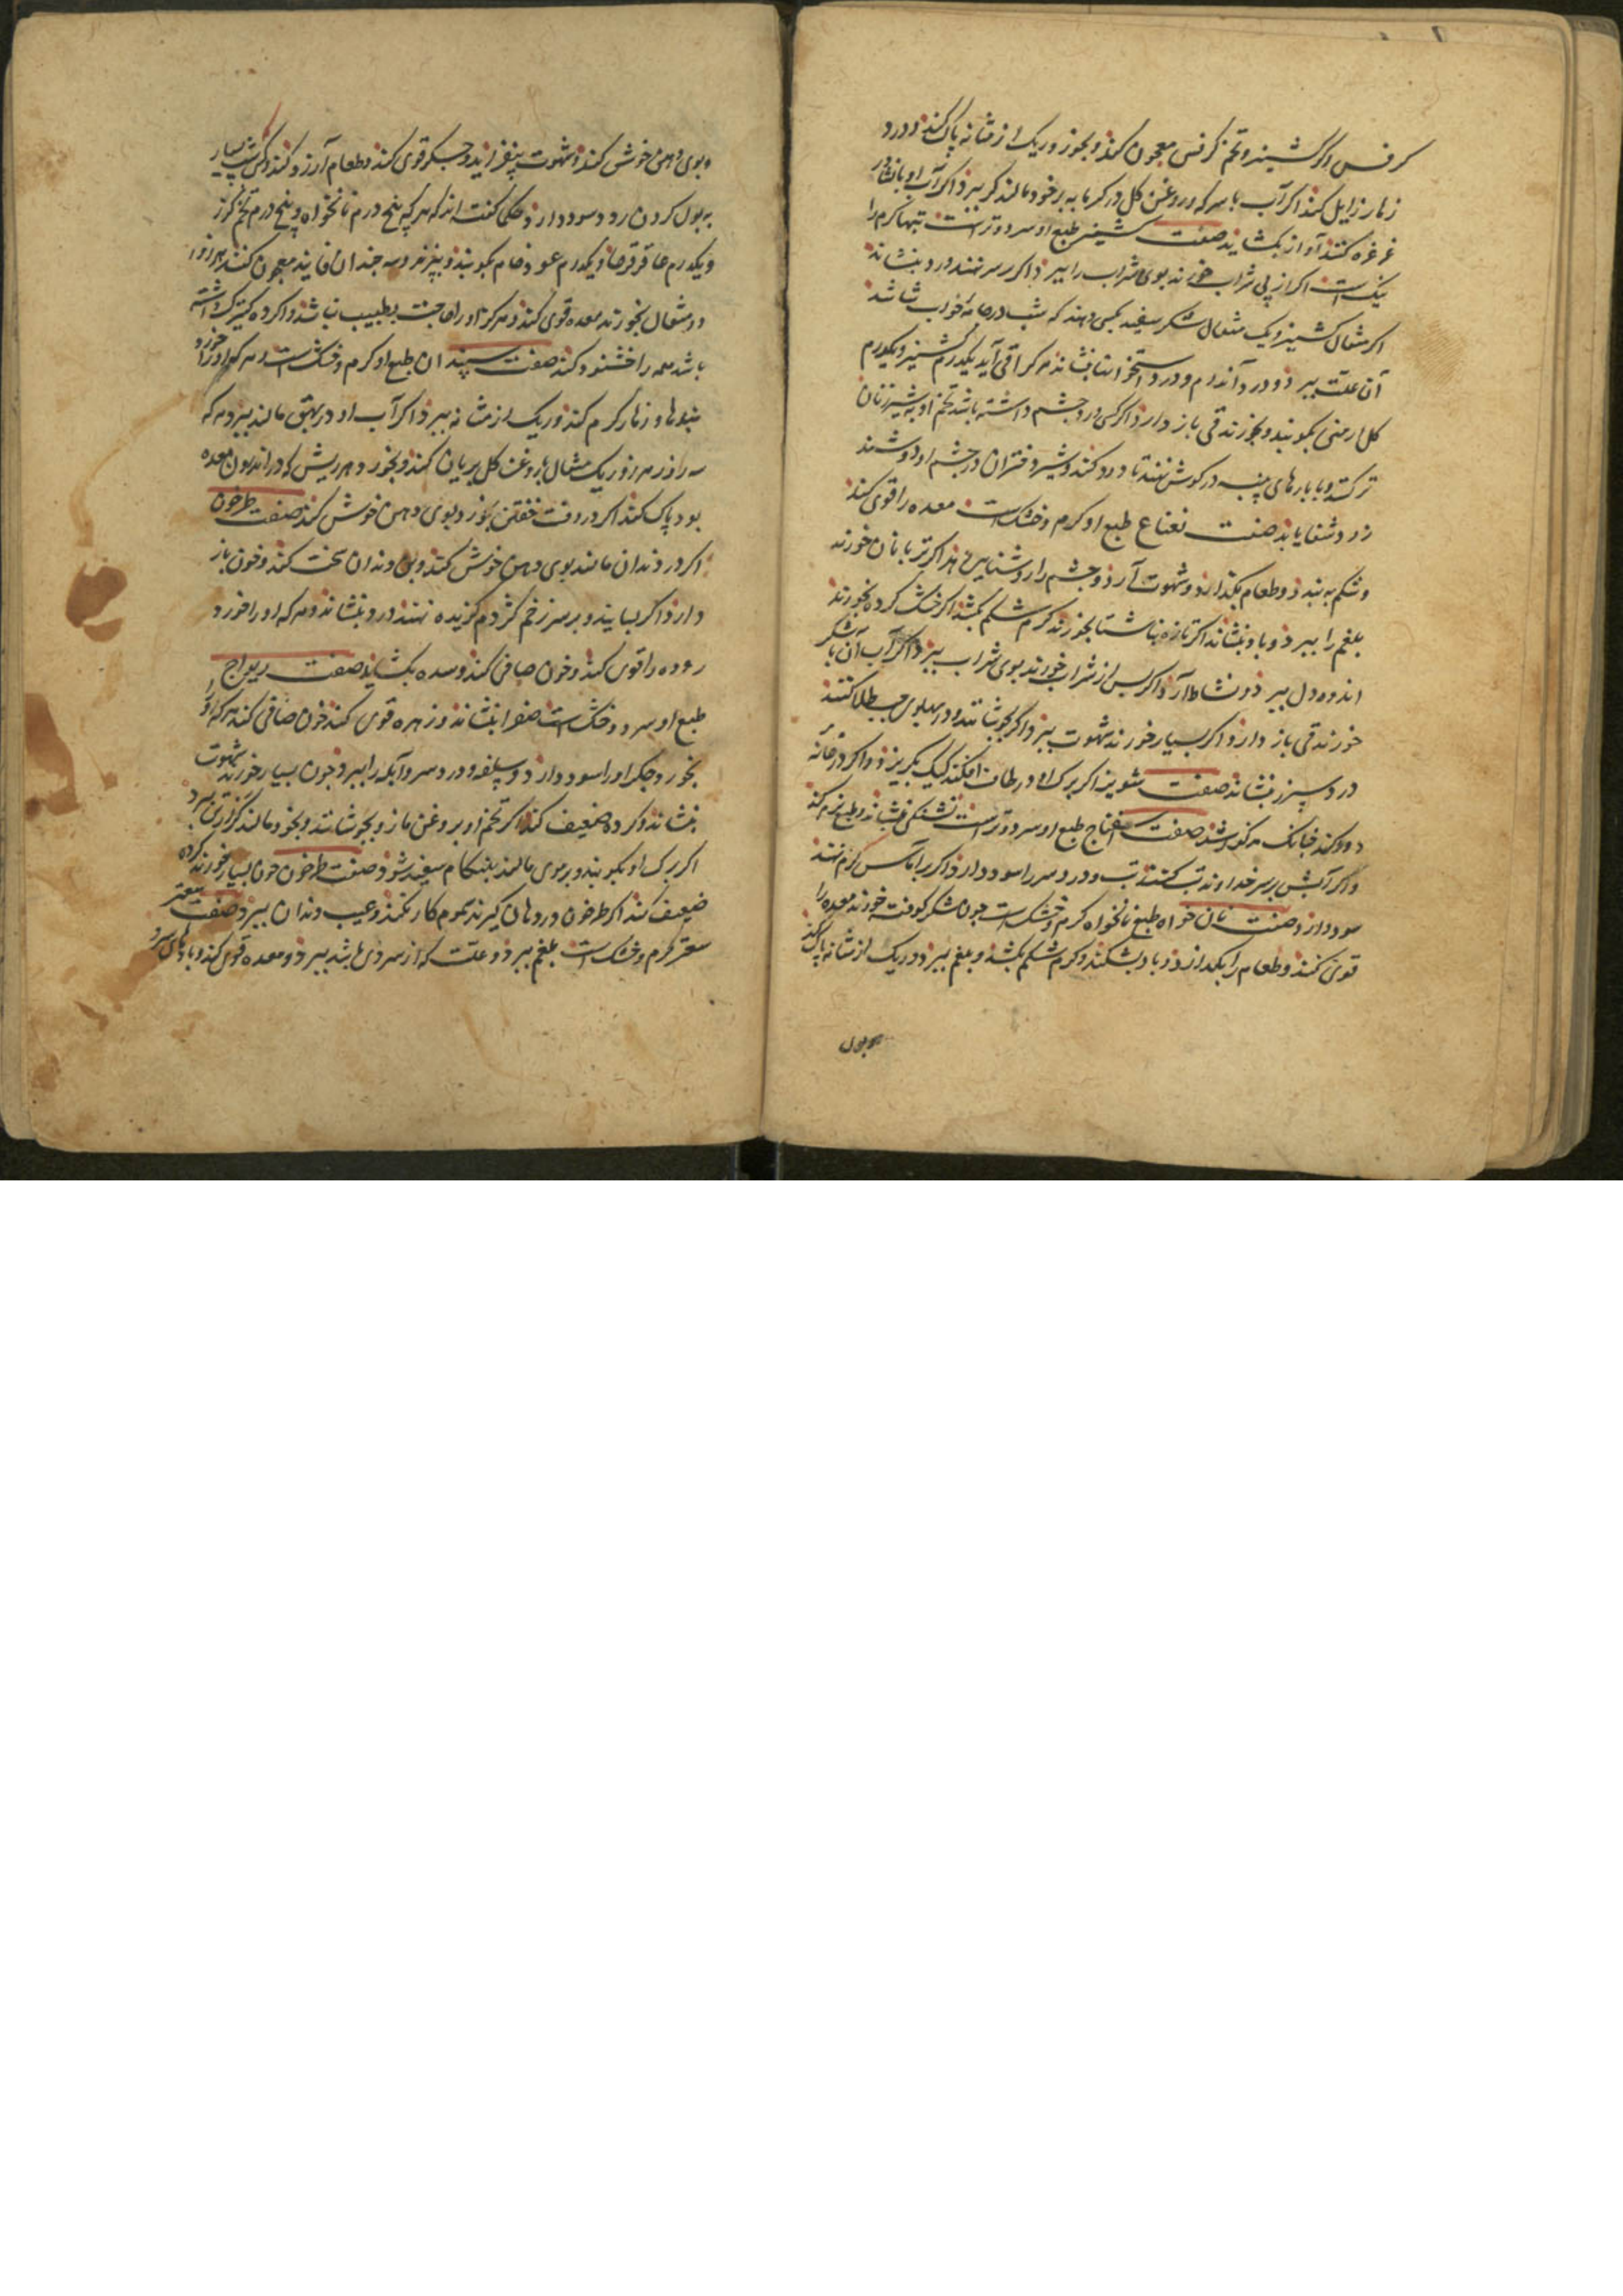 کرفس واکر کشنیز و تخم کرفس معجون کند و بخورد ریک از مثانه پاک کند و درد
زهار زایل کند اکر آب با سرکه و روغن کل در کرمابه بر خود مالند کر ببرد اکر آب او بانشادر
غرغره کنند آواز بکشاید صفت کشنیز طبع او سرد و ترست تبهاء کرم را
نیک است اکر از پی شراب خورند بوی شراب را ببرد اکر بر سر نهند درد بنشاند
اکر مثقال کشنیز و یک مثقال شکر سفید بکسی دهند که شب در جامه خواب شاشد
آن علت ببرد و درد آندام و درد استخوانها بنشاند هرکرا قی آید یکدرم کشنیز و یکدرم
کل ارمنی بکوبند و بخورند قی باز دارد اکر کسی درد چشم داشته باشد تخم او به شیر زنان
تر کنند و با پارهای پنبه در کوش نهند تا درد کند و شیر دختران در چشم او دوشند
زود شفا یابد صفت نعناع طبع او کرم و خشک است معده را قوی کند
و شکم به بندد و طعام بکدازد و شهوت آرد و چشم را روشنایی دهد اکر تر با نان خورند
بلغم را ببرد و باد بنشاند اکر تازه بناشتا بخورند کرم شکم بکشد اکر خشک کرده بخورند
اندوه دل ببرد و نشاط آرد اکر پس از شراب خورند بوی شراب ببرد اکر آب آن با شکر
خورند قی باز دارد و اکر بسیار خورند شهوت ببرد اکر بجوشانند و در پهلوی چپ طلا کنند
درد سپرز بنشاند صفت شونیز اکر برک او در طاق افکنند کیک بکریزد و اکر در خانه
دود کند چنانک مذکور شد صفت اسفناج طبع او سرد و ترست تشنکی بنشاند و طبع نرم کند
و اکر آبش بر سر خداوند تب کنند تب و درد سر را سود دارد و اکر بر آماس کرم نهند
سود دارد صفت نان خواه طبع نانخواه کرم و خشک است چون با شکر کوفته خورند معده را
قوی کند و طعام را بکدازد و باد بشکند و کرم شکم بکشد و بلغم ببرد و ریک از مثانه پاک کند
به بول
و بوی دهن خوش کند و شهوت بیفزاید و جکر قوی کند و طعام آرزو کند و کسی شب بسیار
به بول کردن رود سود دارد و حکی کفت اند که هر که پنج درم نانخواه و پنج درم تخم کزر
و یکدرم عاقرقرحا و یکدرم عود خام بکوبند و بپزند و سه چندان فانید معجون کنند هر روز
دو مثقال بخورند معده قوی کند و هرکز او را حاجت بطبیب نباشد و اکر ده کنیزک داشته
باشد همه را خشنود کند صفت سپندان طبع او کرم و خشک است و هر که او را خورد
پهلوها و زهار کرم کند و ریک از مثانه ببرد اکر آب او در بهق مالند ببرد هر که
سه روز هر روز یک مثقال با روغن کل بریان کند و بخورد هر ریش که در اندرون معده
بود پاک کند اکر در وقت خفتن بخورد بوی دهن خوش کند صفت طرخون
اکر در دندان مالند بوی دهن خوش کند و بن دندان سخت کند و خون باز
دارد اکر بسایند و بر سر زخم کژدم کزیده نهند درد بنشاند و هر که او را خورد
روده را قوی کند و خون صافی کند و سده بکشاید صفت ریواج
طبع او سرد و خشک است صفرا بنشاند و زهره قوی کند خون صافی کند هر که او را
بخورد جکر او را سود دارد و سپلفه و درد سر و آبله را ببرد و چون بسیار خورند شهوت
بنشاند و کرده ضعیف کند اکر تخم او بر روغن مازو بجوشانند و بخود مالند کر تن ببرد
اکر برک او بکوبند و بر موی مالند بهنکام سفید شود صفت طرخون چون بسیار خورند کرده
ضعیف کند اکر طرخون در دهان کیرند سموم کار نکند و عیب دندان ببرد صفت سعتر
سعتر کرم و خشک است بلغم ببرد و علت که از سردی باشد ببرد و معده قوی کند و بادهای سرد